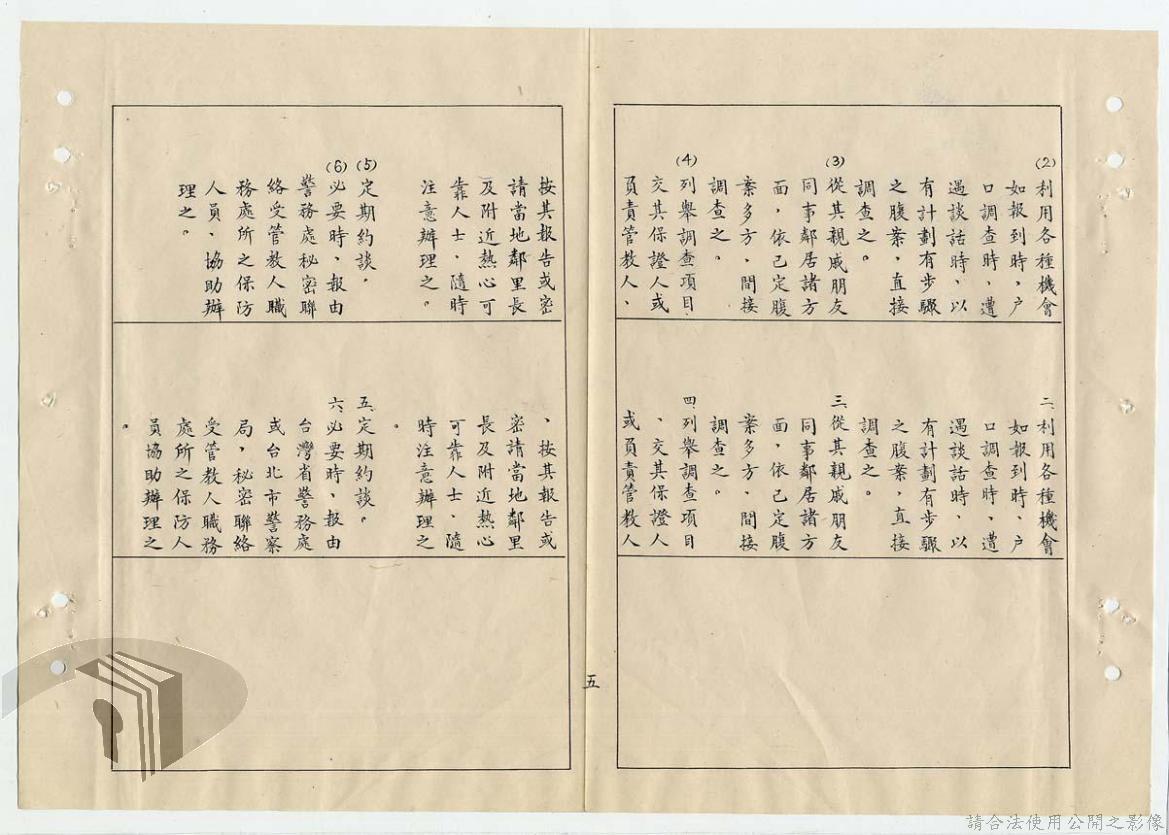 (2)利用各種機會
如報到時，户
口調查時、遭
遇談話時、以
有計劃有步驟
之腹案，直接
調查之。
(3)從其親戚朋友
同事鄰居諸方
面，依已定腹
案多方、間接
調查之。
(4)列舉調查項目
交其保證人或
負責管教人、
按其報告或密
請當地鄰里長
及附近熱心可
靠人士、隨時
注意辦理之。
(5)定期約談，
(6)必要時、報由
警務處秘密聯
絡受管教人職
務處所之保防
人員、協助辦
理之。
二利用各種機會
如報到時、户
口調查時、遭
遇談話時、以
有計劃有步驟
之腹案，直接
調查之。
三、從其親戚朋友
同事鄰居諸方
面，依已定腹
案多方、間接
調查之。
四、列舉調查項目
、交其保證人
或負責管教人
、按其報告或
密請當地鄰里
長及附近熱心
可靠人士、隨
時注意辦理之
。
五、定期約談。
六、必要時、報由
台灣省警務處
或台北市警察
局，秘密聯絡
受管教人職務
處所之保防人
員協助辦理之
。
五
請合法使用公開之影像